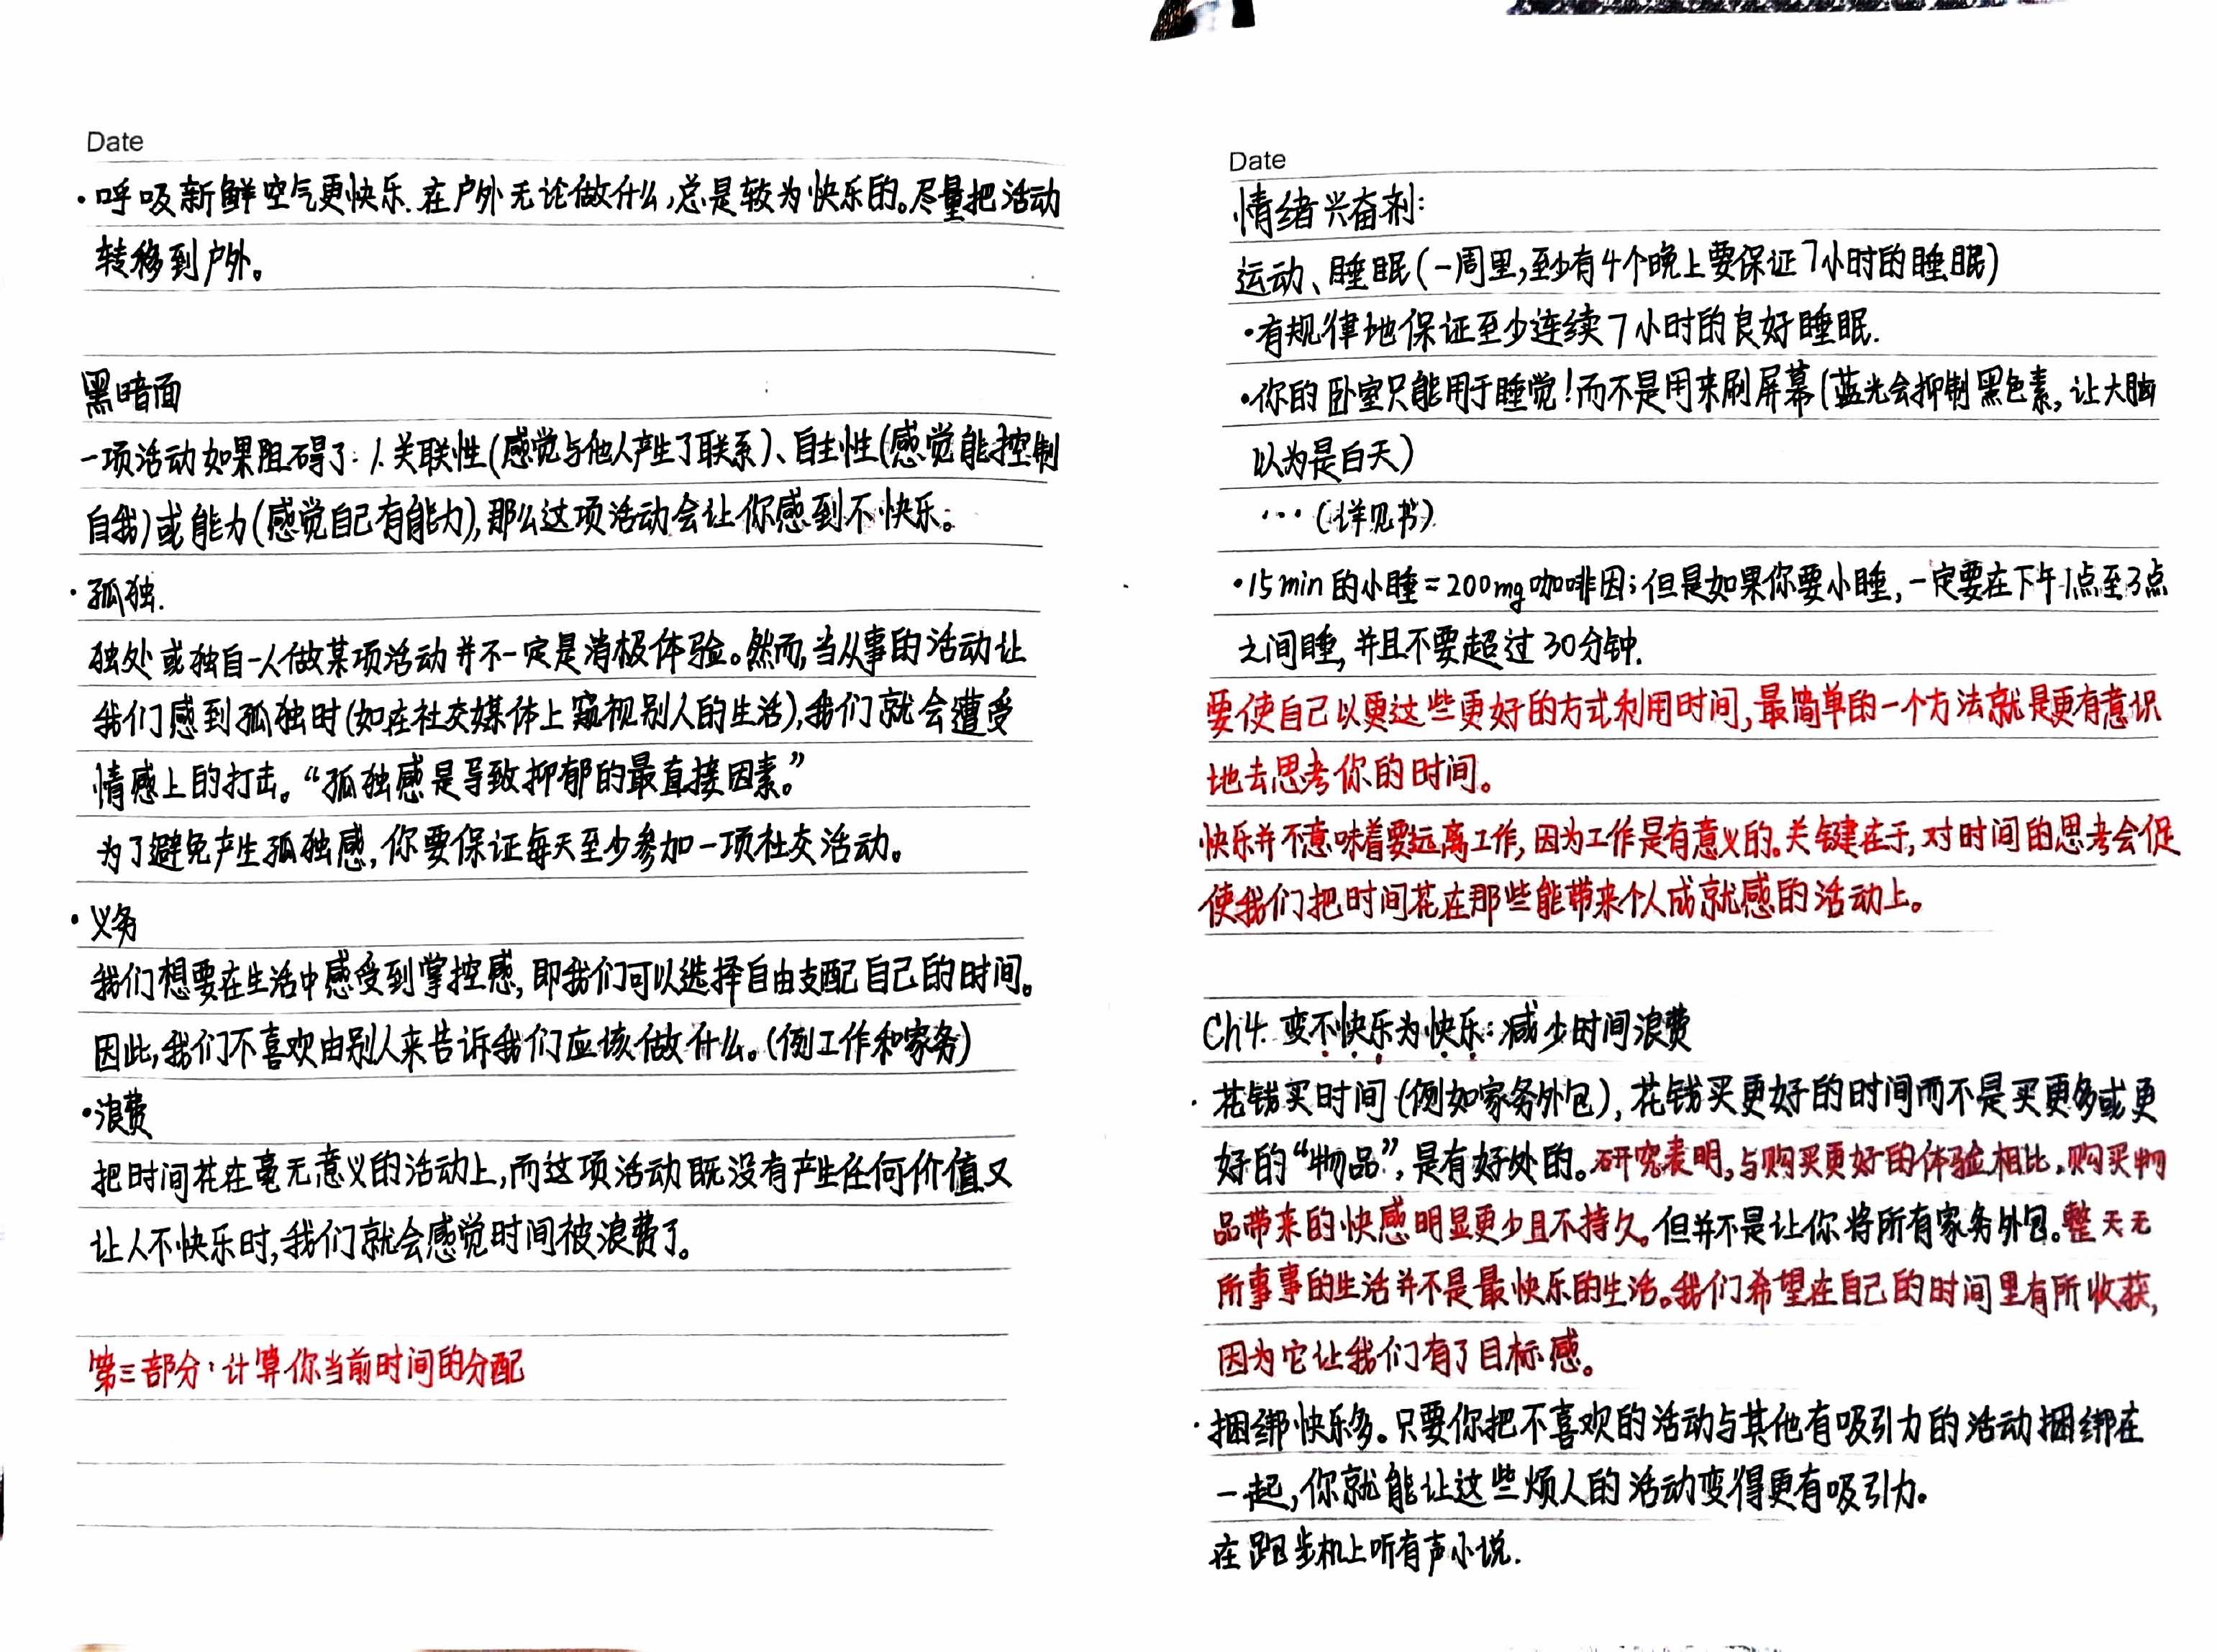 Date
·呼吸新鲜空气更快乐.在户外无论做什么,总是较为快乐的。尽量把活动
转移到户外。
黑暗面
一项活动如果阻碍了:1.关联性(感觉与他人产生了联系)、自主性(感觉能控制
自我)或能力(感觉自己有能力),那么这项活动会让你感到不快乐。
·孤独.
独处或独自一人做某项活动并不一定是消极体验。然而,当从事的活动让
我们感到孤独时(如在社交媒体上窥视别人的生活),我们就会遭受
情感上的打击。“孤独感是导致抑郁的最直接因素。”
为了避免产生孤独感,你要保证每天至少参加一项社交活动。
·义务
我们想要在生活中感受到掌控感,即我们可以选择自由支配自己的时间。
因此,我们不喜欢由别人来告诉我们应该做什么。(例工作和家务)
·浪费
把时间花在毫无意义的活动上,而这项活动既没有产生任何价值又
让人不快乐时,我们就会感觉时间被浪费了。
第三部分:计算你当前时间的分配
Date
情绪兴奋剂:
运动、睡眠(一周里,至少有4个晚上要保证7小时的睡眠)
·有规律地保证至少连续7小时的良好睡眠.
·你的卧室只能用于睡觉!而不是用来刷屏幕(蓝光会抑制黑色素,让大脑
以为是白天)
···(详见书)
·15min的小睡=200mg咖啡因;但是如果你要小睡,一定要在下午1点至3点
之间睡,并且不要超过30分钟.
要使自己以更这些更好的方式利用时间,最简单的一个方法就是更有意识
地去思考你的时间。
快乐并不意味着要远离工作,因为工作是有意义的。关键在于,对时间的思考会促
使我们把时间花在那些能带来个人成就感的活动上。
Ch4.变不快乐为快乐:减少时间浪费
·花钱买时间(例如家务外包),花钱买更好的时间而不是买更多或更
好的“物品”,是有好处的。研究表明,与购买更好的体验相比,购买物
品带来的快感明显更少且不持久。但并不是让你将所有家务外包。整天无
所事事的生活并不是最快乐的生活。我们希望在自己的时间里有所收获,
因为它让我们有了目标感。
·捆绑快乐多。只要你把不喜欢的活动与其他有吸引力的活动捆绑在
一起,你就能让这些烦人的活动变得更有吸引力。
在跑步机上听有声小说.